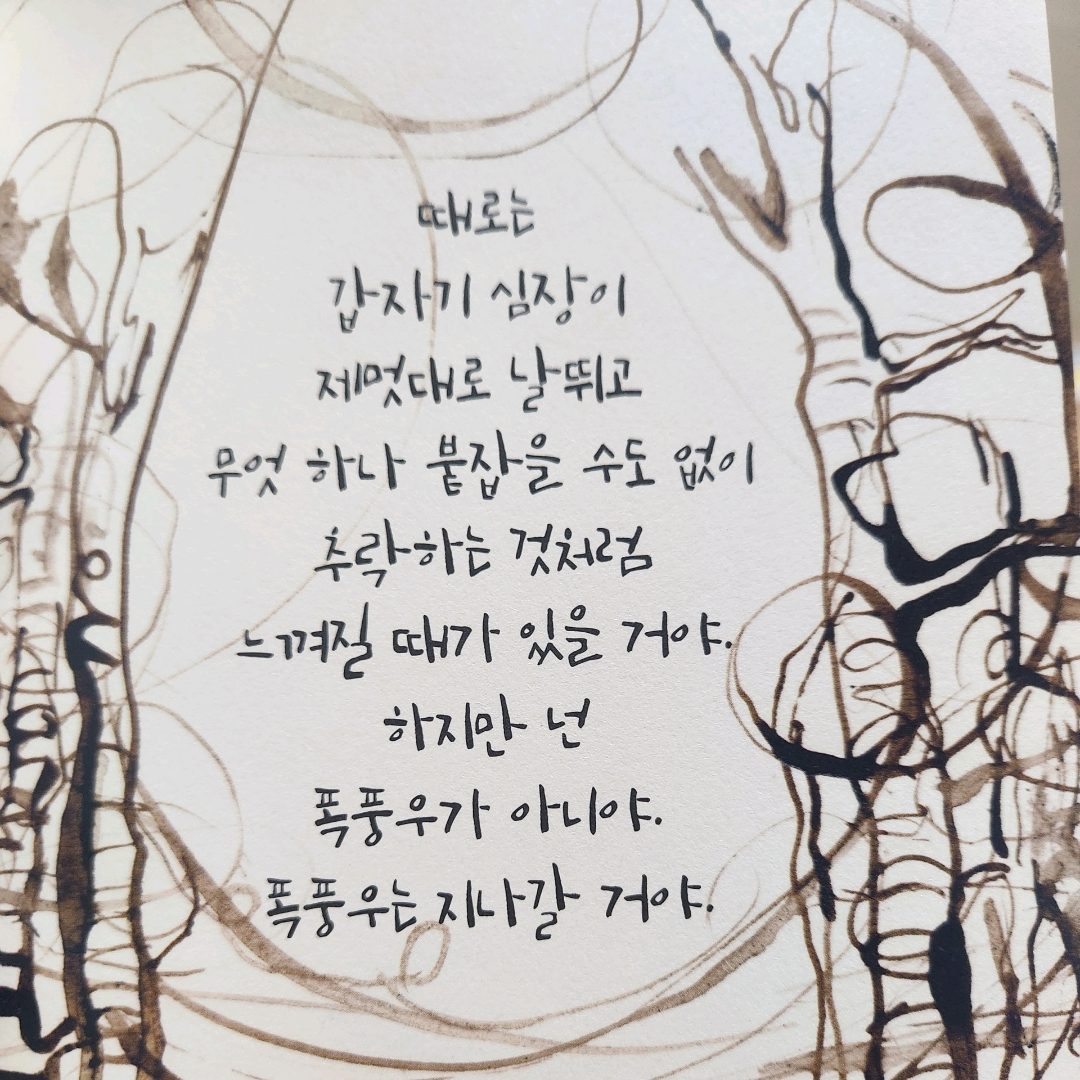 때로는
갑자기 심장이
제멋대로 날뛰고
무엇 하나 붙잡을 수도 없이
추락하는 것처럼
느껴질 때가 있을 거야.
하지만 넌
폭풍우가 아니야.
폭풍우는 지나갈 거야.